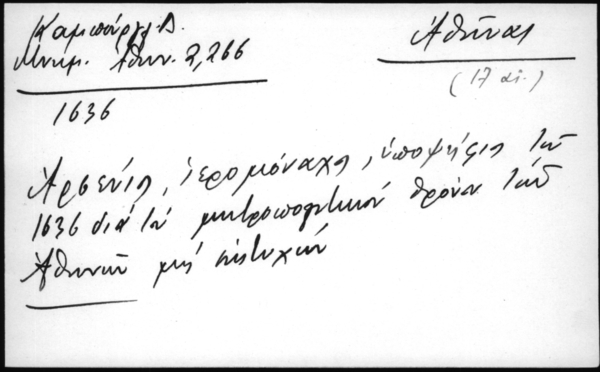 Καμπούργλ. Δ.
Μνημ. Ἀθην. 2,266
Ἀθῆναι
(17 αἰ.)
1636
Ἀρσένιος, ἱερομόναχος, ὑποψήφιος τῷ
1636 διὰ τὸν μητροπολιτικὸν θρόνον τῶν
Ἀθηνῶν μὴ ἐπιτυχών